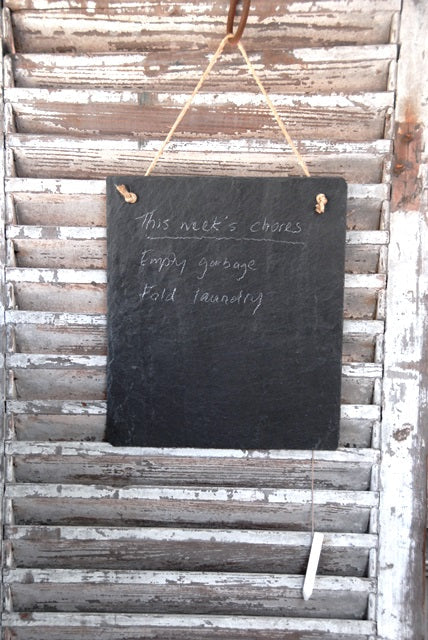 This week's chores
Empty garbage
Fold laundry